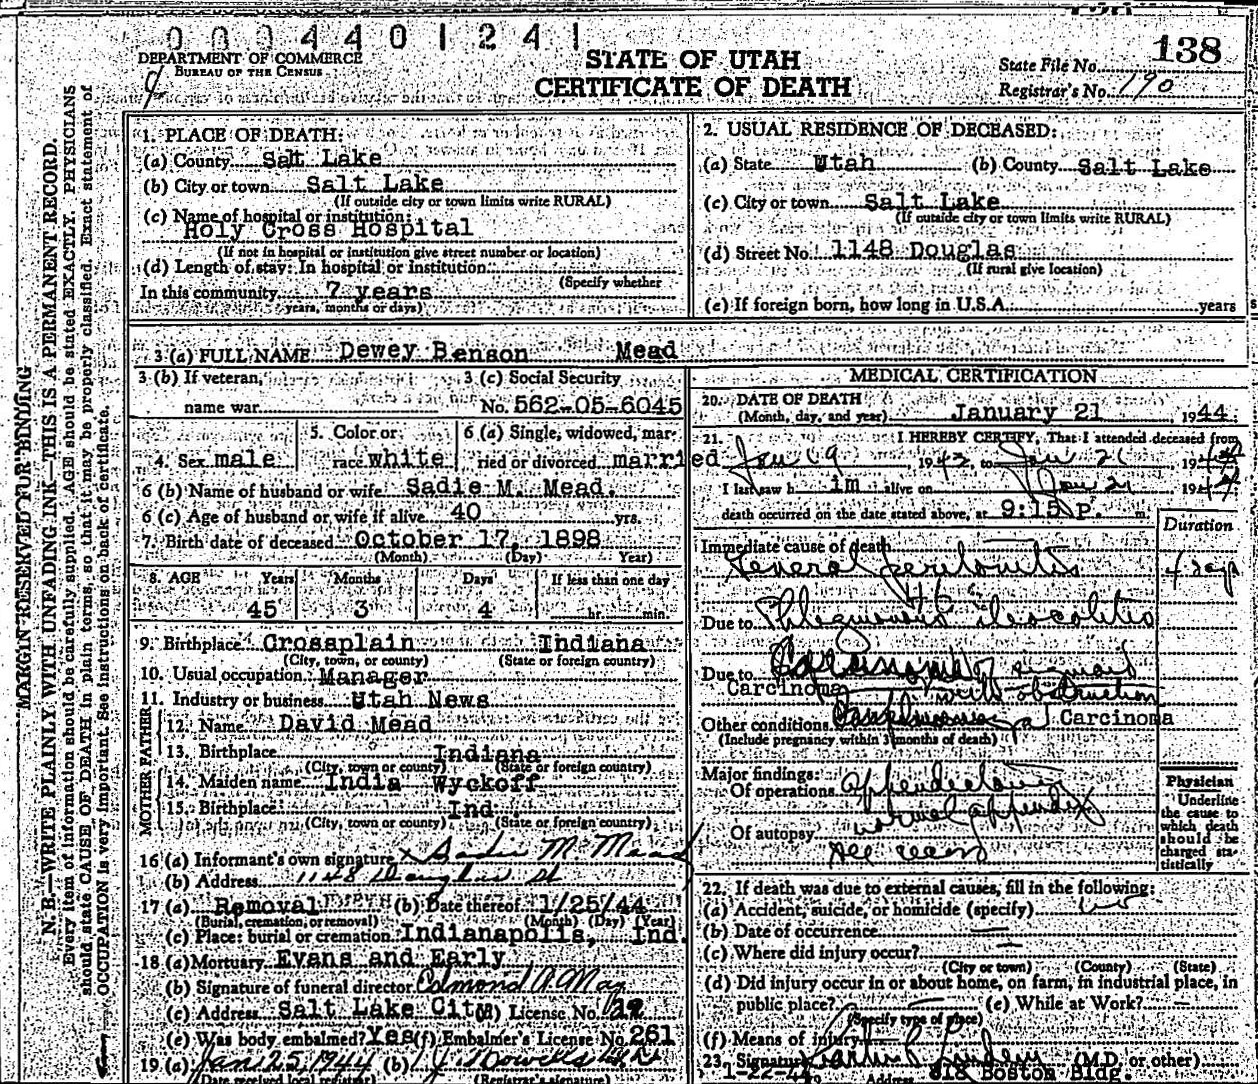 0 0 0 4 4 0 1 2 4 1
DEPARTMENT OF COMMERCE
BUREAU OF THE CENSUS
STATE OF UTAH
CERTIFICATE OF DEATH
State File No. 138
Registrar's No. 190
MARGIN RESERVED FOR BINDING
N. B.—WRITE PLAINLY, WITH UNFADING INK—THIS IS A PERMANENT RECORD.
Every item of information should be carefully supplied. AGE should be stated EXACTLY. PHYSICIANS
should state CAUSE OF DEATH in plain terms, so that it may be properly classified. Exact statement of
OCCUPATION is very important. See instructions on back of certificate.
1. PLACE OF DEATH:
(a) County Salt Lake
(b) City or town Salt Lake
(If outside city or town limits write RURAL)
(c) Name of hospital or institution:
Holy Cross Hospital
(If not in hospital or institution give street number or location)
(d) Length of stay: In hospital or institution
(Specify whether
In this community 7 years
years, months or days)
2. USUAL RESIDENCE OF DECEASED:
(a) State Utah (b) County Salt Lake
(c) City or town Salt Lake
(If outside city or town limits write RURAL)
(d) Street No. 1148 Douglas
(If rural give location)
(e) If foreign born, how long in U.S.A. years
3 (a) FULL NAME Dewey Benson Mead
3 (b) If veteran, name war
3 (c) Social Security No. 562-05-6045
4. Sex male
5. Color or race white
6 (a) Single, widowed, married or divorced married
6 (b) Name of husband or wife Sadie M. Mead.
6 (c) Age of husband or wife if alive 40 yrs.
7. Birth date of deceased October 17, 1898
(Month) (Day) Year)
8. AGE Years Months Days If less than one day
45 3 4 hr. min.
9. Birthplace Crossplain Indiana
(City, town, or county) (State or foreign country)
10. Usual occupation Manager
11. Industry or business Utah News
FATHER
12. Name David Mead
13. Birthplace Indiana
(City, town or county) (State or foreign country)
MOTHER
14. Maiden name India Wyckoff
15. Birthplace Ind.
(City, town or county) (State or foreign country)
16 (a) Informant's own signature x Sadie M Mead
(b) Address 1148 Douglas St
17 (a) Removal (b) Date thereof 1/25/44
(Burial, cremation, or removal) (Month) (Day) (Year)
(c) Place: burial or cremation Indianapolis, Ind.
18 (a) Mortuary Evans and Early
(b) Signature of funeral director Edmond A. May
(c) Address Salt Lake City (d) License No.
(e) Was body embalmed? Yes (f) Embalmer's License No. 261
19 (a) Jan 25, 1944 (b)
(Date received local registrar) (Registrar's signature)
MEDICAL CERTIFICATION
20. DATE OF DEATH
(Month, day, and year) January 21 1944
21. I HEREBY CERTIFY, That I attended deceased from
Jan 19, 1943, to Jan 21 19
I last saw h im alive on Jan 21 194
death occurred on the date stated above, at 9:15 P. m.
Duration
Immediate cause of death
General peritonitis 4 days
Due to Phlegmonous ileocolitis
Due to Carcinoma of sigmoid
Carcinoma with obstruction
Other conditions Carcinoma
(Include pregnancy within 3 months of death)
Major findings:
Of operations appendectomy
normal appendix
Of autopsy
see record
Physician
Underline
the cause to
which death
should be
charged sta-
tistically
22. If death was due to external causes, fill in the following:
(a) Accident, suicide, or homicide (specify) no
(b) Date of occurrence
(c) Where did injury occur?
(City or town) (County) (State)
(d) Did injury occur in or about home, on farm, in industrial place, in
public place? (e) While at Work?
(Specify type of place)
(f) Means of injury
23. Signature (M.D. or other)
1-22-4 Address 818 Boston Bldg.